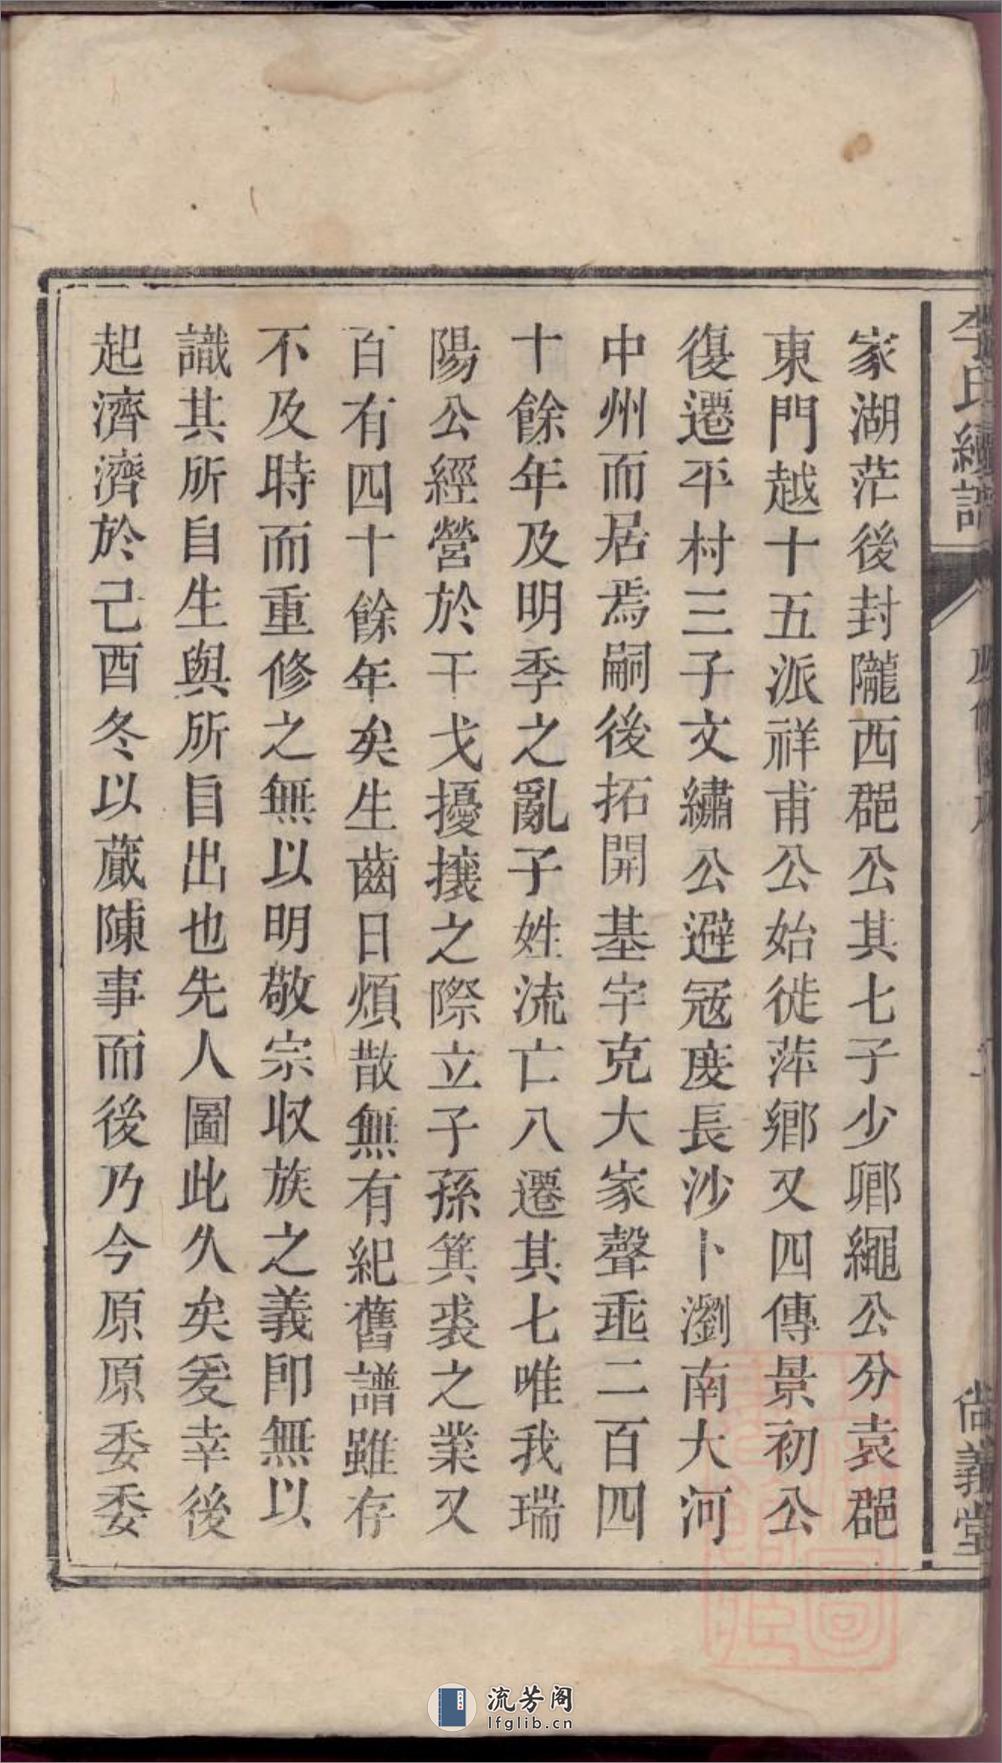 李氏續譜
尚義堂
家湖茫後封隴西郡公其七子少卿繩公分袁郡
東門越十五派祥甫公始徙萍鄉又四傳景初公
復遷平村三子文繡公避冦度長沙卜瀏南大河
中州而居焉嗣後拓開基宇克大家聲乖二百四
十餘年及明季之亂子姓流亡八遷其七唯我瑞
陽公經營於干戈擾攘之際立子孫箕裘之業又
百有四十餘年矣生齒日煩散無有紀舊譜雖存
不及時而重修之無以明敬宗収族之義卽無以
識其所自生與所自出也先人圖此久矣爰幸後
起濟濟於己酉冬以蕆陳事而後乃今原原委委
流芳阁
lfglib.cn